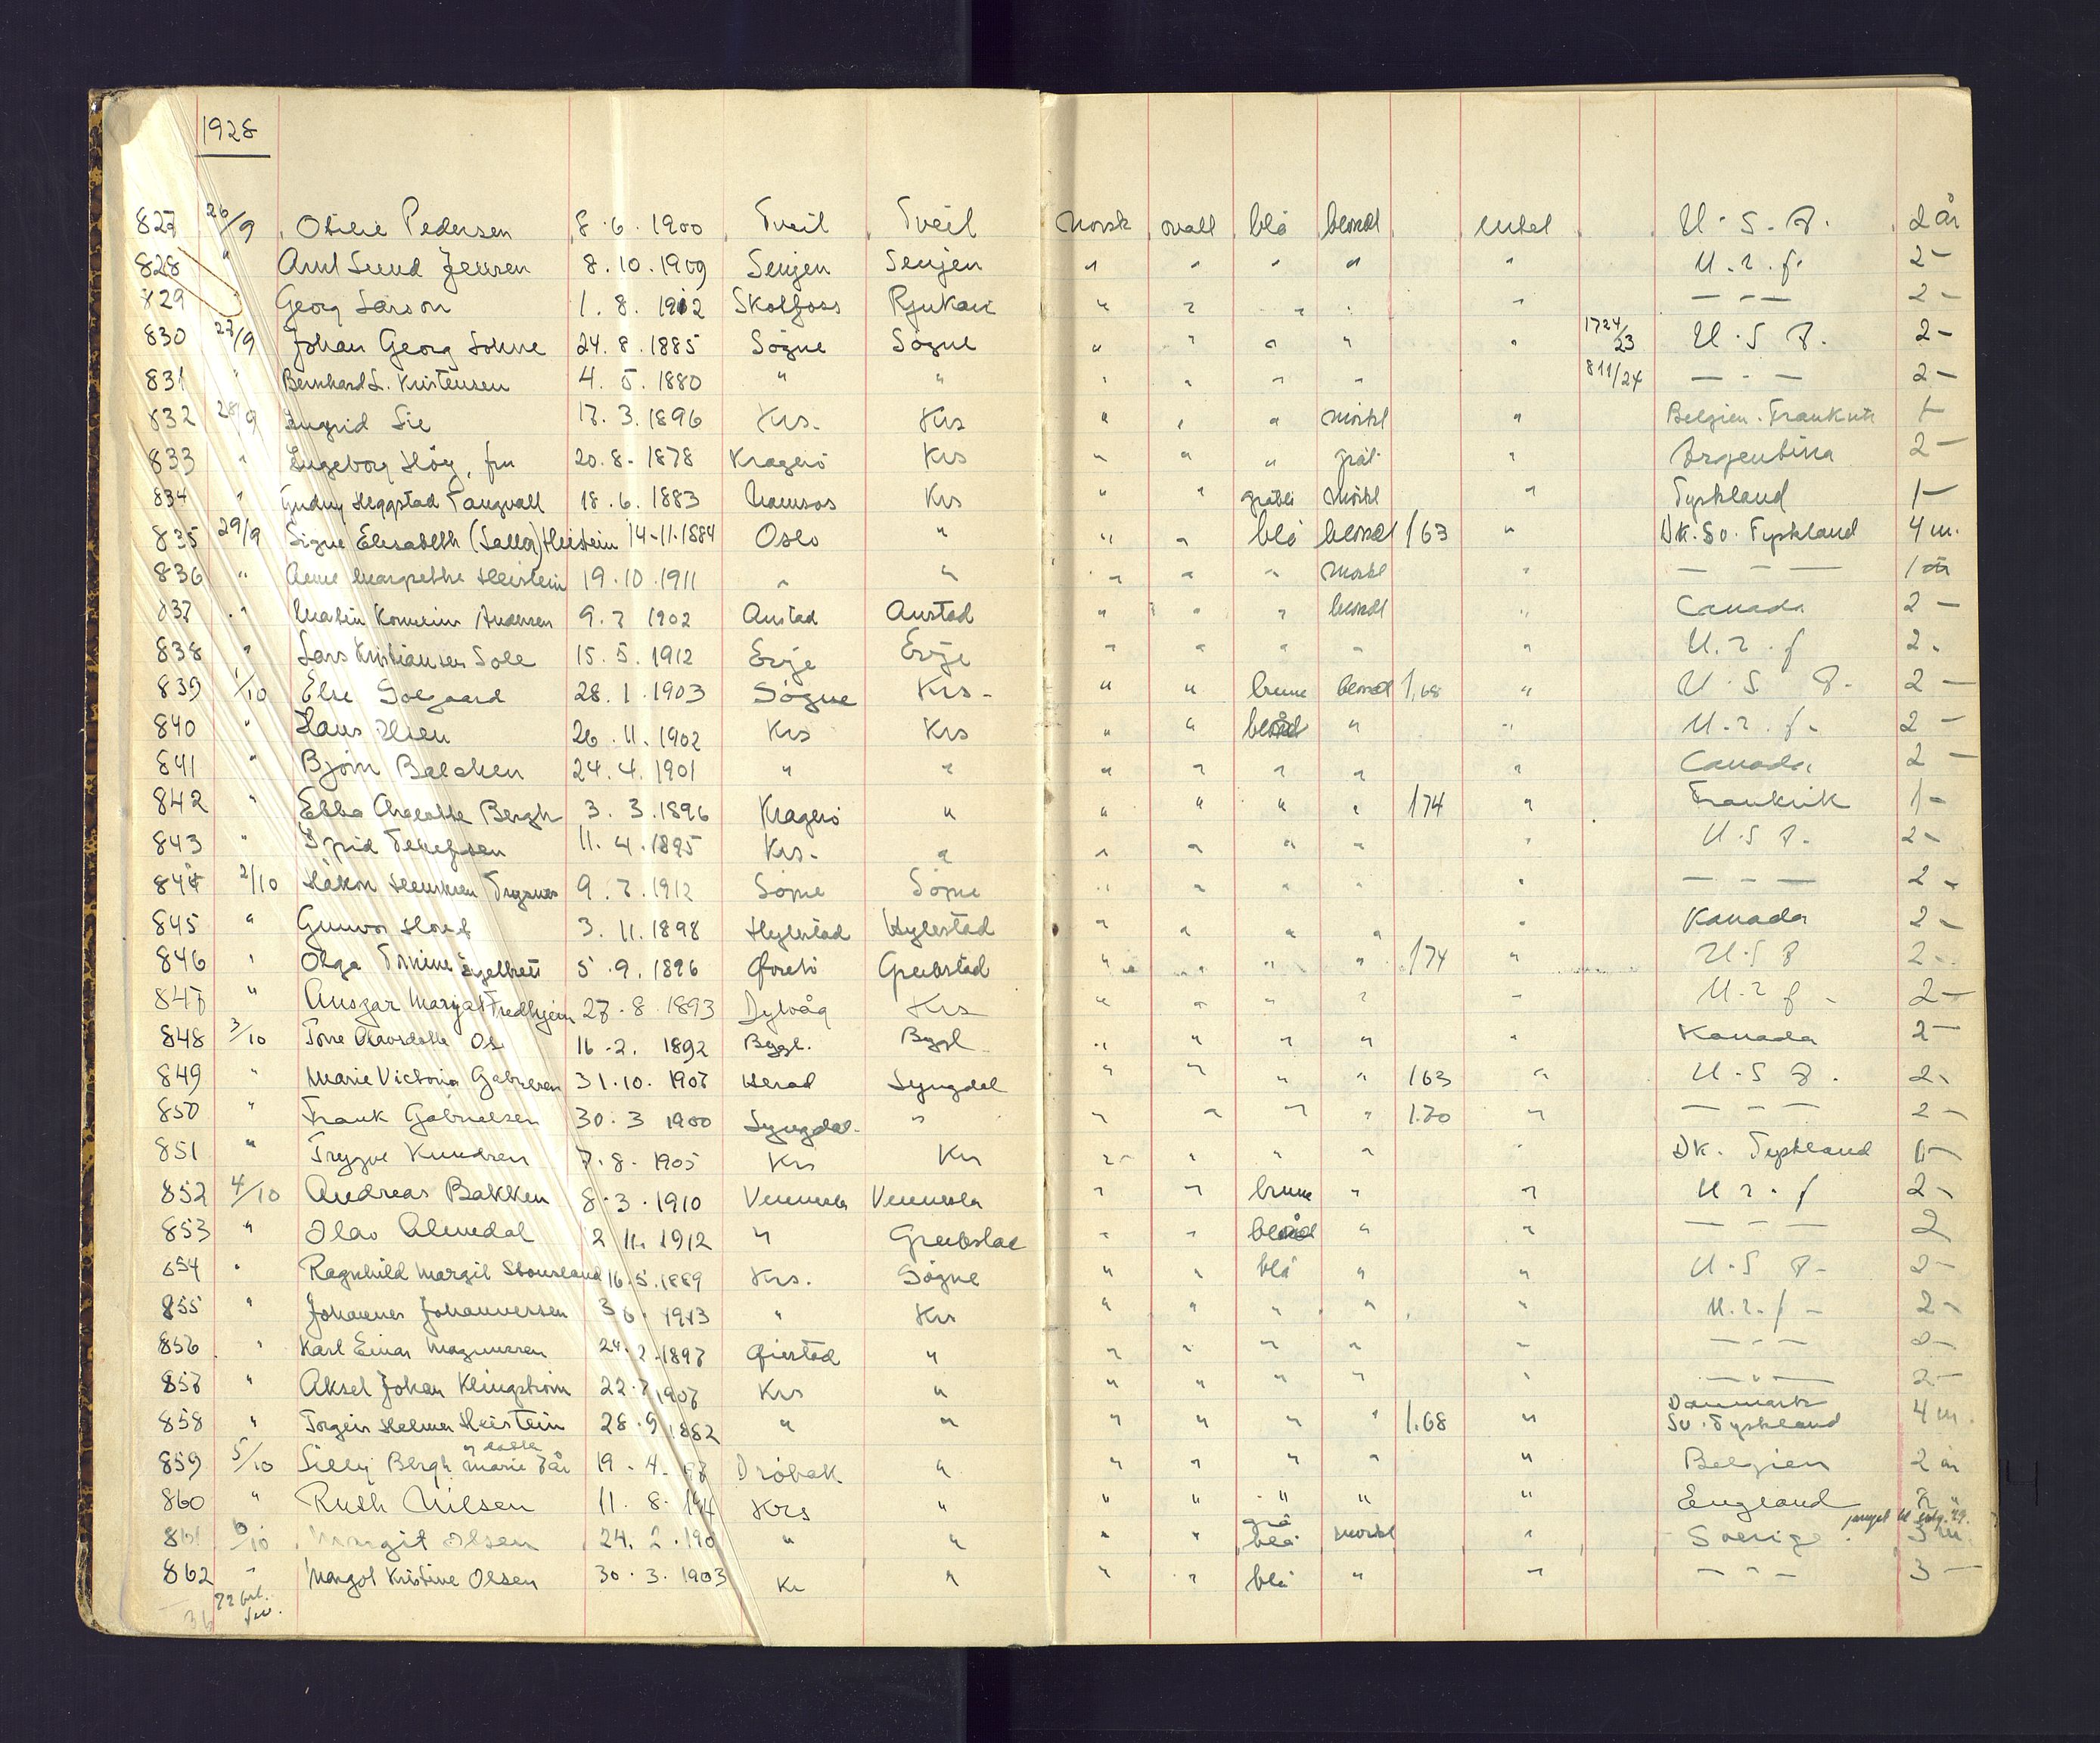 1928
827 26/9 Otilie Pedersen 8.6.1900 Tveit Tveit norsk ovalt blå blondt enkel U.S.A. 2 år
828 " Arnt Lund Jensen 8.10.1909 Senjen Senjen " " " " " U.r.f. 2 -
829 Georg Larson 1.8.1912 Skotfoss Rjukan " " " " " - " - 2 -
830 27/9 Johan Georg Sohne 24.8.1885 Søgne Søgne " " " " " 1724/23 U.S.A. 2 -
831 " Bernhard L. Kristensen 4.5.1880 " " " " " " 811/24 - " - 2 -
832 28/9 Ingrid Lie 17.3.1896 Krs. Krs " " " mørkt " Belgien. Frankrik 1 -
833 " Ingeborg Høg, fru 20.8.1878 Kragerø Krs " " " gråt " Argentina 2 -
834 " Gudny Heggstad Tangvall 18.6.1883 Namsos Krs " " gråblå mørkt " Tyskland 1 -
835 29/9 Signe Elisabeth (Salla) Heistein 14.11.1884 Oslo " " " blå blondt 163 " DK. Sv. Tyskland 4 m.
836 " Anne Margrethe Heistein 19.10.1911 " " " " " mørkt " - " - 1 år
837 " Martin Andersen 9.7.1902 Austad Austad " " " blondt " Canada 2 -
838 " Lars Kristiansen 15.5.1912 Evje Evje " " " " " U.r.f 2 -
839 1/10 Else Solgaard 28.1.1903 Søgne Krs. " " brune blondt 1,68 " U.S.A. 2 -
840 " Hans Olsen 26.11.1902 Krs Krs " " blå " " U.r.f. 2 -
841 " Bjørn Balchen 24.4.1901 " " " " " " " Canada 2 -
842 " Ebba Charlotte Bergh 3.3.1896 Kragerø " " " " " 174 " Frankrik 1 -
843 " Terkelsen 11.4.1895 Krs. " " " " " " U.S.A. 2 -
844 2/10 Håkon Henriksen Trysnes 9.7.1912 Søgne Søgne " " " " " - " - 2 -
845 " Gunvor 3.11.1898 Hylestad Hylestad " " " " " Kanada 2 -
846 " Olga Tomine 5.9.1896 Greipstad " " " " 174 " U.S.A 2 -
847 " Ansgar Fredhjem 27.8.1893 Dybvåg Krs " " " " " U.r.f. 2 -
848 3/10 Tone Olavsdatter Ose 16.2.1892 Bygl. Bygl " " " " " Kanada 2 -
849 " Marie Victoria Gabrielsen 31.10.1907 Herad Lyngdal " " " " 163 " U.S.A. 2 -
850 " Frank Gabrielsen 30.3 1900 Lyngdal " " " " " 1.70 " - " - 2 -
851 " Trygve Knudsen 7.8.1905 Krs Krs " " " " " DK. Tyskland 1 -
852 4/10 Andreas Bakken 8.3.1910 Vennesla Vennesla " " brune " " U.r.f 2 -
853 " Olav Almedal 2.11.1912 " Greipstad " " blå " " - " - 2
854 " Ragnhild Margit 16.5.1889 Krs. Søgne " " blå " " U.S.A. 2 -
855 " Johannes Johannessen 3 6. 1913 " Krs " " " " " U.r.f. - 2 -
856 " Karl Einar Magnussen 24.2.1897 Øiestad " " " " " " - " - 2 -
857 " Aksel Johan Klingstrøm 22.7 1907 Krs " " " " " " - " - 2 -
858 " Torgeir Helmer Heistein 28.9 1882 " " " " " " 1.68 " Danmark Sv. Tyskland 4 m.
859 5/10 Silly Bergh og datter Marie 7 år 19.4.97 Drøbak " " " " " " Belgien 2 år
860 " Ruth Nilsen 11.8.14 Krs " " " " " " England
861 6/10 Margit Olsen 24.2.190 " " " " grå blå mørkt " Sverige. 3 m.
862 " Margot Kristine Olsen 30.3.1903 Kr " " " blå " " - " - 3 -
36